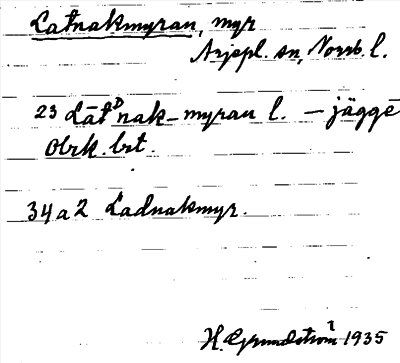 Latnakmyran, myr
Arjepl. sn, Norrb. l.
23 Lātᴰnak-myran l. - jägge
Obrk. brt.
34a2 Ladnakmyr.
H. Grundström 1935